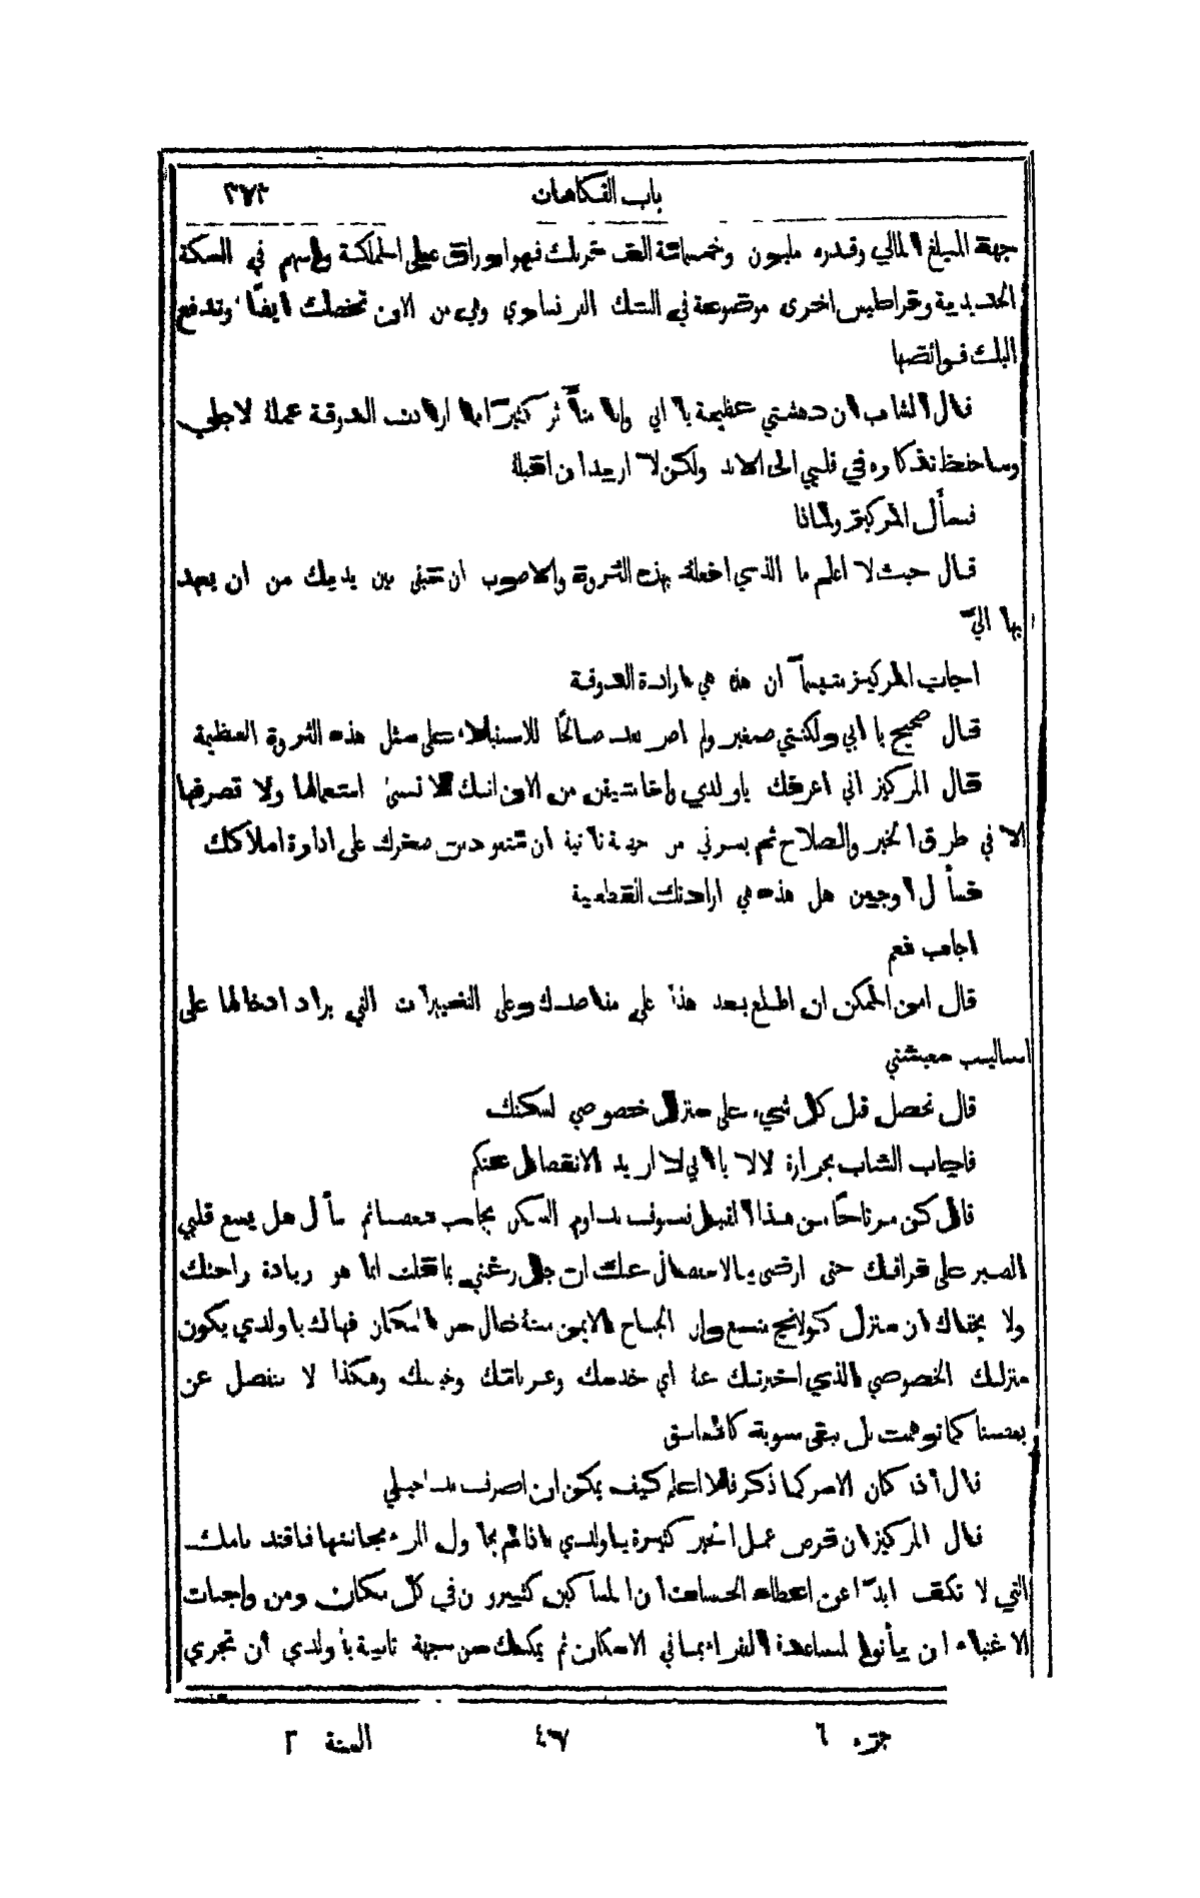 باب الفكاهات ٣٧٣
جهة المبلغ المالي وقدره مليون وخمسائة الف فرنك فهو اوراق على المملكة واسهم في السكة
الحديدية وقراطيس اخرى موضوعة في البنك الفرنساوي وهي من الان تخصك ايضًا وتدفع
اليك فوائضها
قال الشاب ان دهشتي عظيمة يا ابي وانا متأثر كثيرًا بما ارادت الدوقة عملهُ لاجلي
وساحفظ تذكاره في قلبي الى الابد ولكن لا اريد ان اقبلهُ
فسأل المركيز ولماذا
قال حيث لا اعلم ما الذي افعلهُ بهذه الثروة والاصوب ان تبقى بين يديك من ان يعهد
بها اليّ
اجاب المركيز متبسماً ان هذه هي ارادة الدوقة
قال صحيح يا ابي ولكنني صغير ولم اصر بعد صالحًا للاستيلاء على مثل هذه الثروة العظيمة
قال المركيز اني اعرفك يا ولدي وانا متيقن من الان انك لا تسيء استعمالها ولا تصرفها
الا في طريق الخير والصلاح ثم يسرني من جهة ثانية ان تتعود من صغرك على ادارة املاكك
فسأل اوجين هل هذه هي ارادتك القطعية
اجاب نعم
قال امن الممكن ان اطلع بعد هذا على مقاصدك وعلى التغييرات التي يراد ادخالها على
اساليب معيشتي
قال تحصل قبل كل شيء على منزل خصوصي لسكنك
فاجاب الشاب بحرارة لا لا يا ابي لا اريد الانفصال عنكم
قال كن مرتاحًا من هذا القبيل فسوف نداوم السكن بجانب بعضنا ثم سأل هل يسع قلبي
الصبر على فراقك حتى ارضى بالانفصال عنك ان جل رغبتي بما قلت انما هو زيادة راحتك
ولا يخفاك ان منزل كولانج متسع وان الجناح الايمن منهُ خال من السكان فهناك يا ولدي يكون
منزلك الخصوصي الذي اخبرتك عنهُ اي خدمك وعرباتك وخيلك وهكذا لا ننفصل عن
بعضنا كما توهمت بل نبقى سوية كالسابق
قال اذا كان الامر كما ذكر فلا اعلم كيف يمكن ان اصرف مداخيلي
قال المركيز ان فرص عمل الخير كثيرة يا ولدي
التي لا تكف ابدًا عن اعطاء الحسنات ان المساكين كثيرون في كل مكان ومن واجبات
الاغنياء ان يأتوا لمساعدة الفقراء بما في الامكان ثم يمكنك من جهة ثانية يا ولدي ان تجري
جزء ٦ ٤٧ السنة ٢